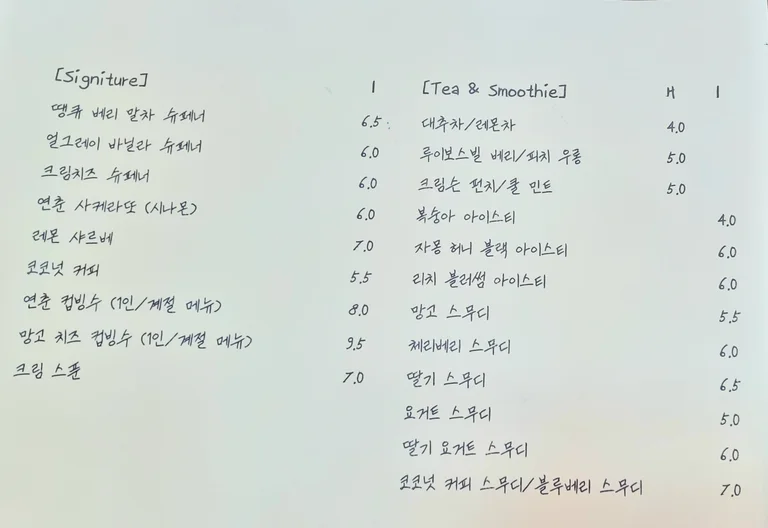 [Signiture] I
땡큐 베리 말차 슈페너 6.5
얼그레이 바닐라 슈페너 6.0
크림치즈 슈페너 6.0
연춘 사케라또 (시나몬) 6.0
레몬 샤르베 7.0
코코넛 커피 5.5
연춘 컵빙수 (1인/계절 메뉴) 8.0
망고 치즈 컵빙수 (1인/계절 메뉴) 9.5
크림 스푼 7.0
[Tea & Smoothie] H I
대추차/레몬차 4.0
루이보스빌 베리/피치 우롱 5.0
크림슨 펀치/쿨 민트 5.0
복숭아 아이스티 4.0
자몽 허니 블랙 아이스티 6.0
리치 블러썸 아이스티 6.0
망고 스무디 5.5
체리베리 스무디 6.0
딸기 스무디 6.5
요거트 스무디 5.0
딸기 요거트 스무디 6.0
코코넛 커피 스무디/블루베리 스무디 7.0